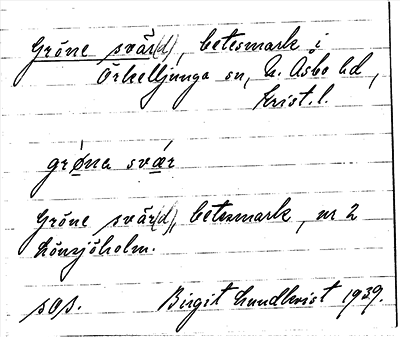 Gröne svär(d), betesmark i
Örkelljunga sn, N. Åsbo hd,
Krist. l.
grøna svær
Gröne svär(d), betesmark, nr 2
Lönsjöholm.
sos. Birgit Lundkvist 1939.